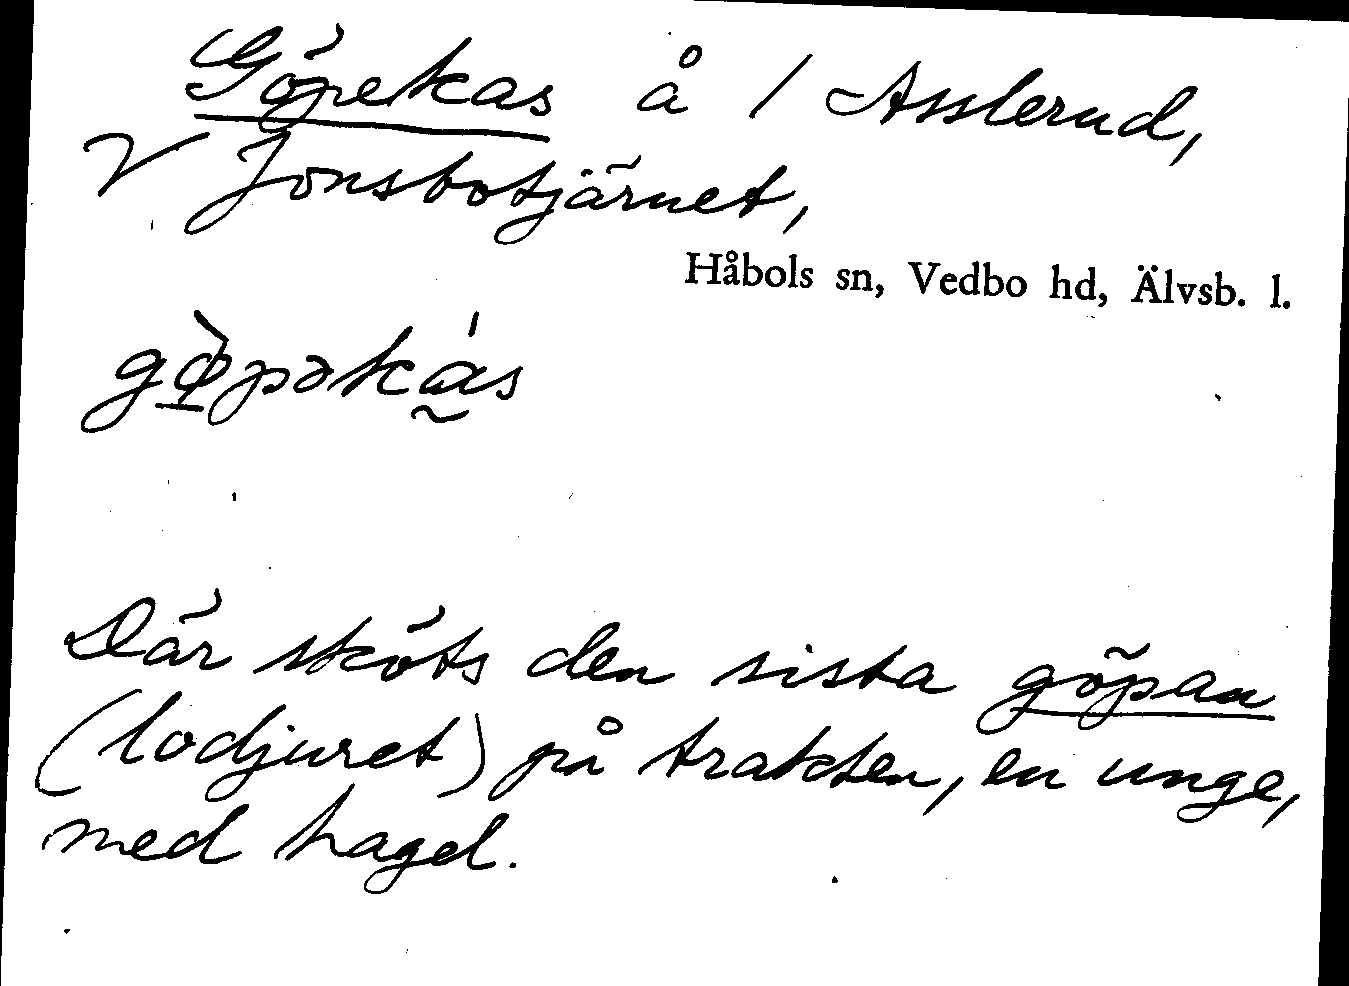 Göpekas å 1 Asslerud,
V Jonsbotjärnet,
Håbols sn, Vedbo hd, Älvsb. l.
gø̀pəkás
Där sköts den sista göpan
(lodjuret) på trakten, en unge,
med hagel.